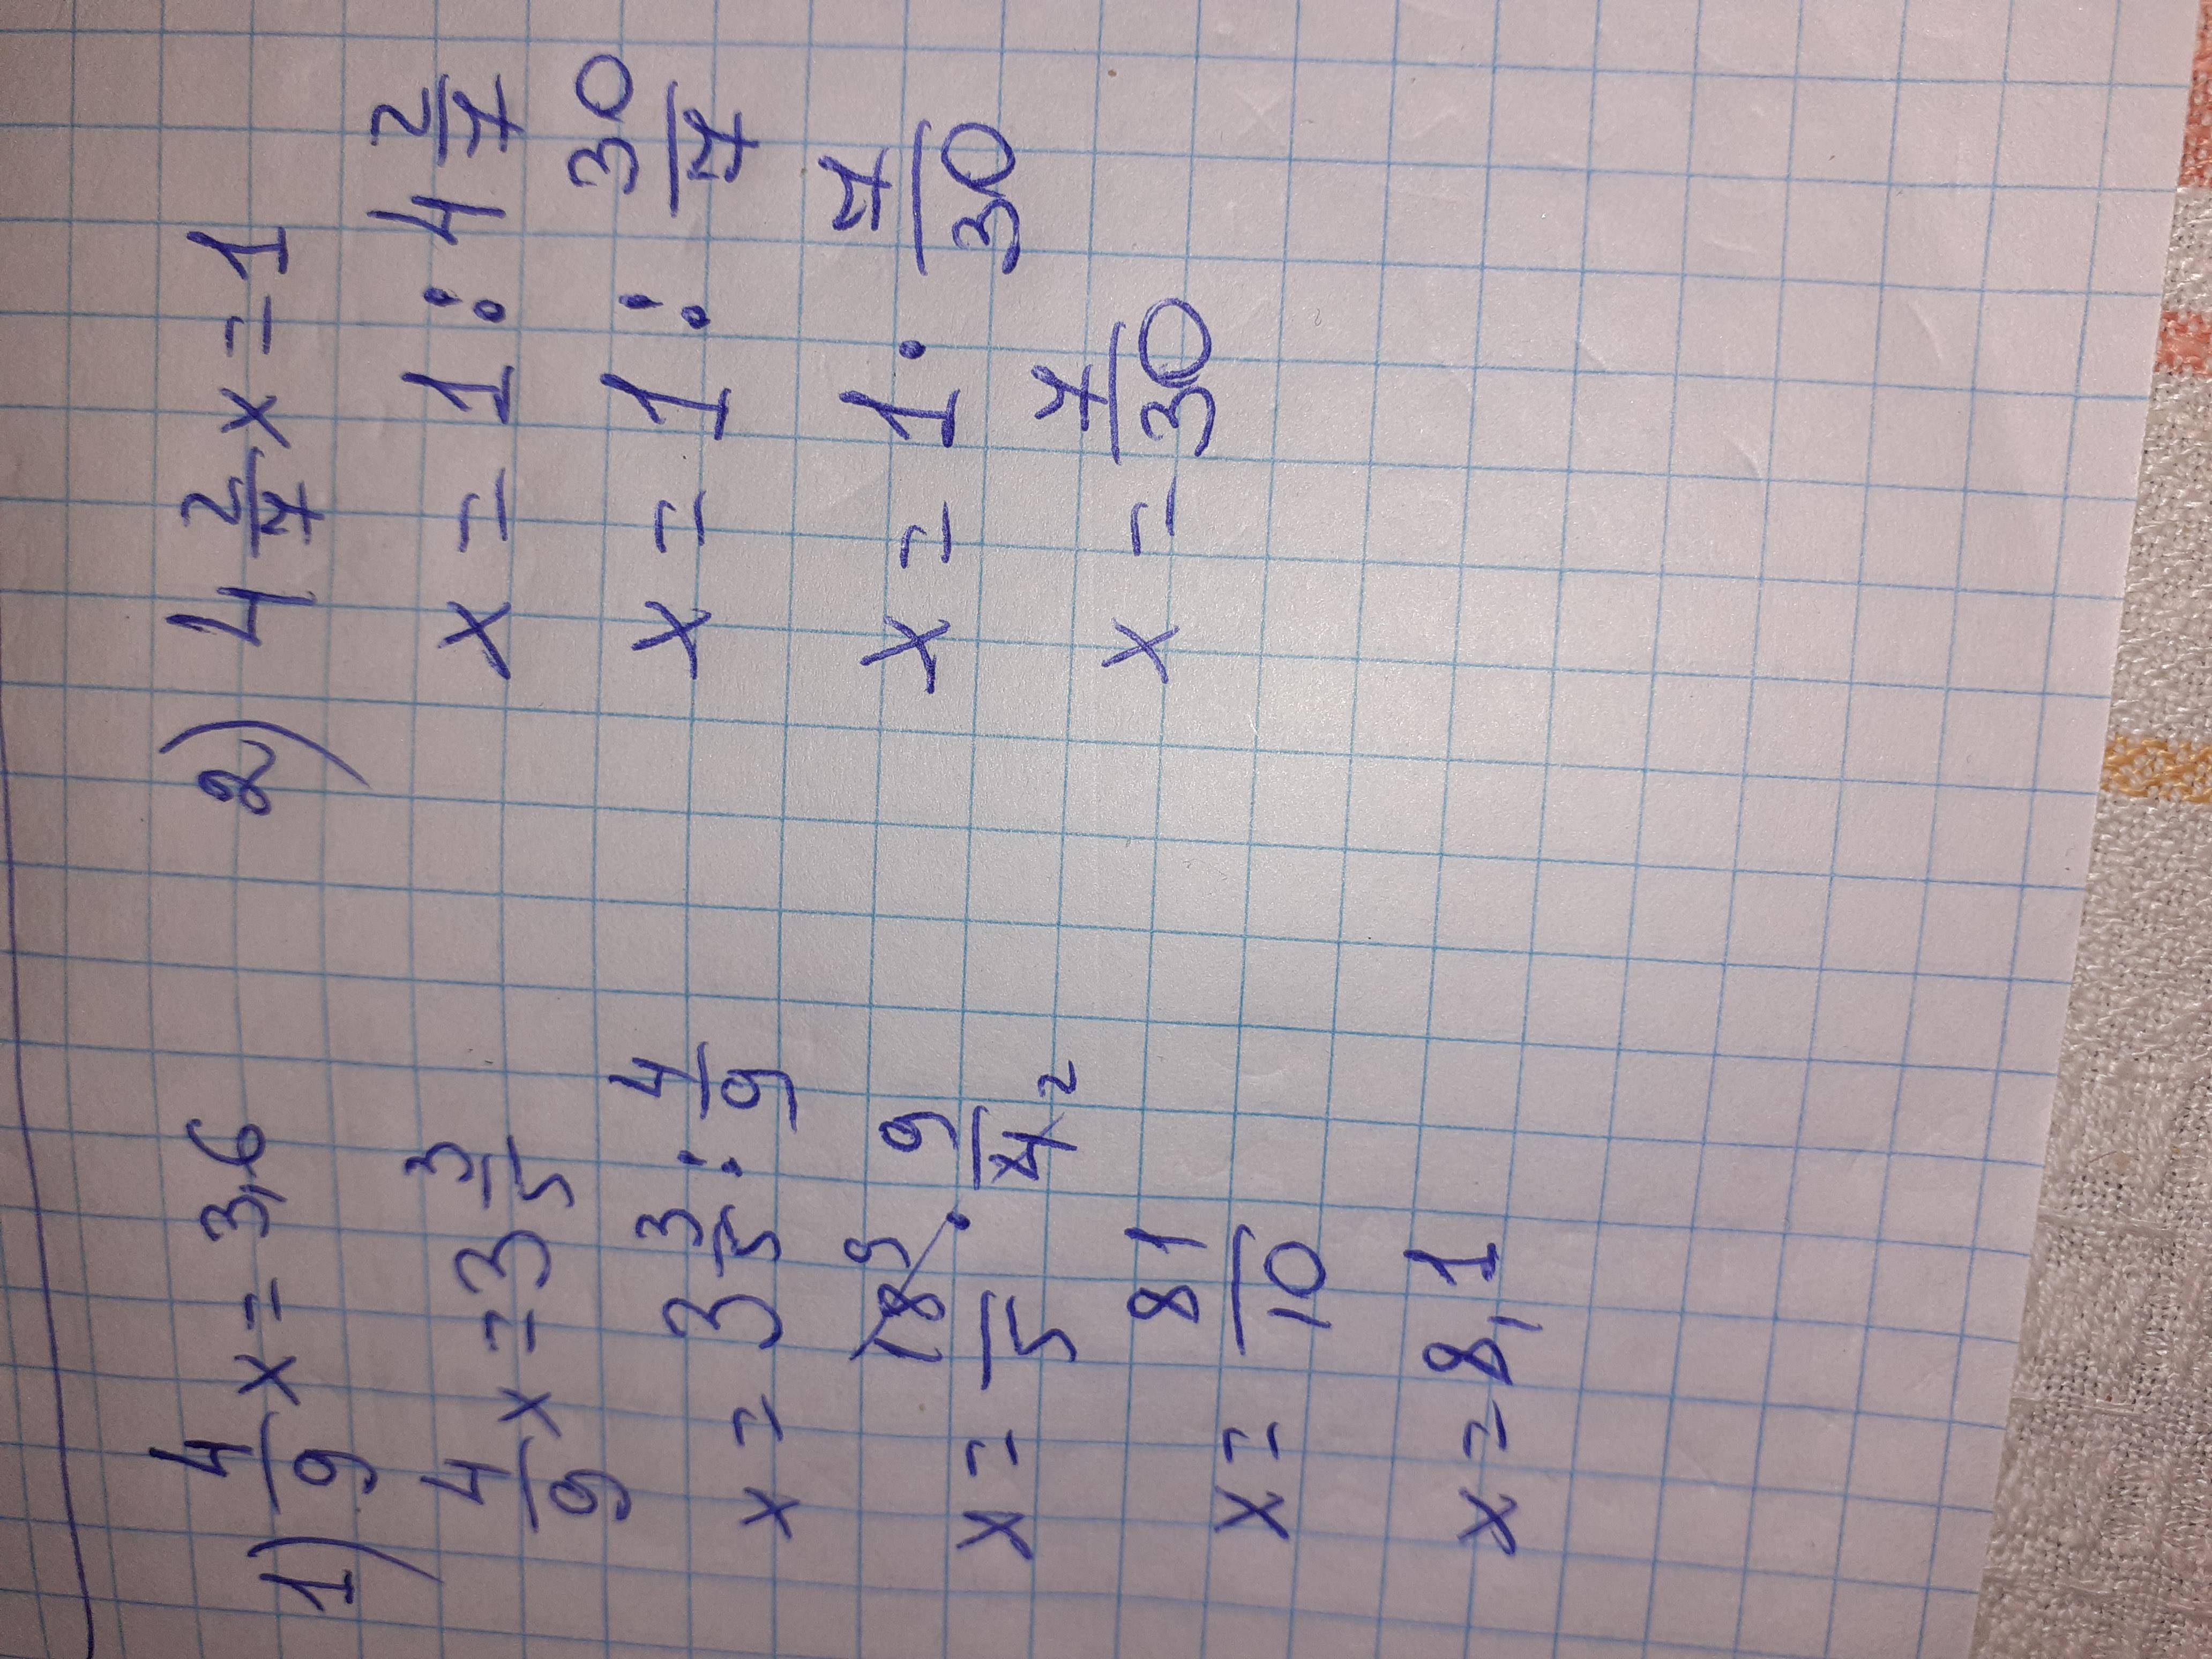 1) 4/9 x = 3,6
4/9 x = 3 3/5
x = 3 3/5 : 4/9
x = 18 9/5 · 9/4 2
x = 81/10
x = 8,1
2) 4 2/7 x = 1
x = 1 : 4 2/7
x = 1 : 30/7
x = 1 · 7/30
x = 7/30